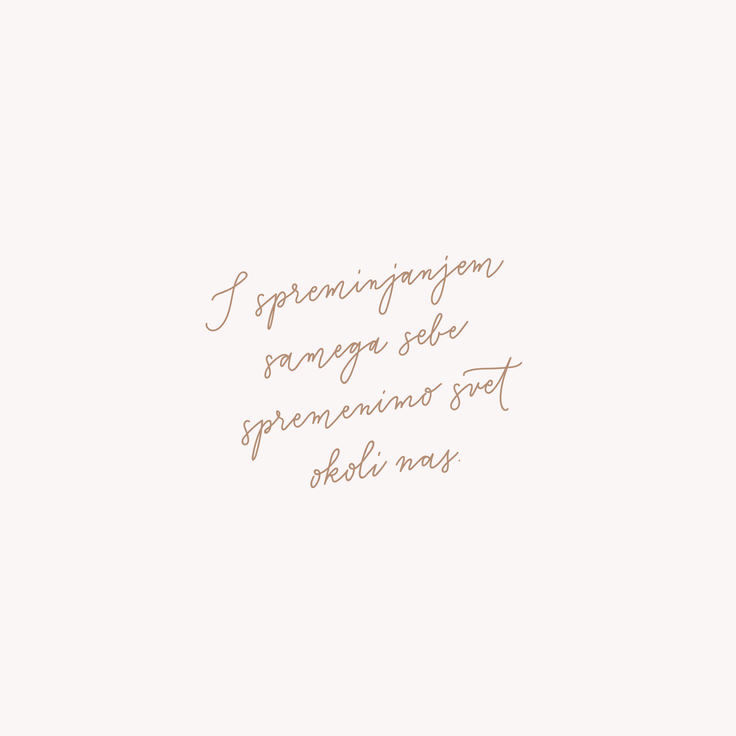 S spreminjanjem
samega sebe
spremenimo svet
okoli nas.